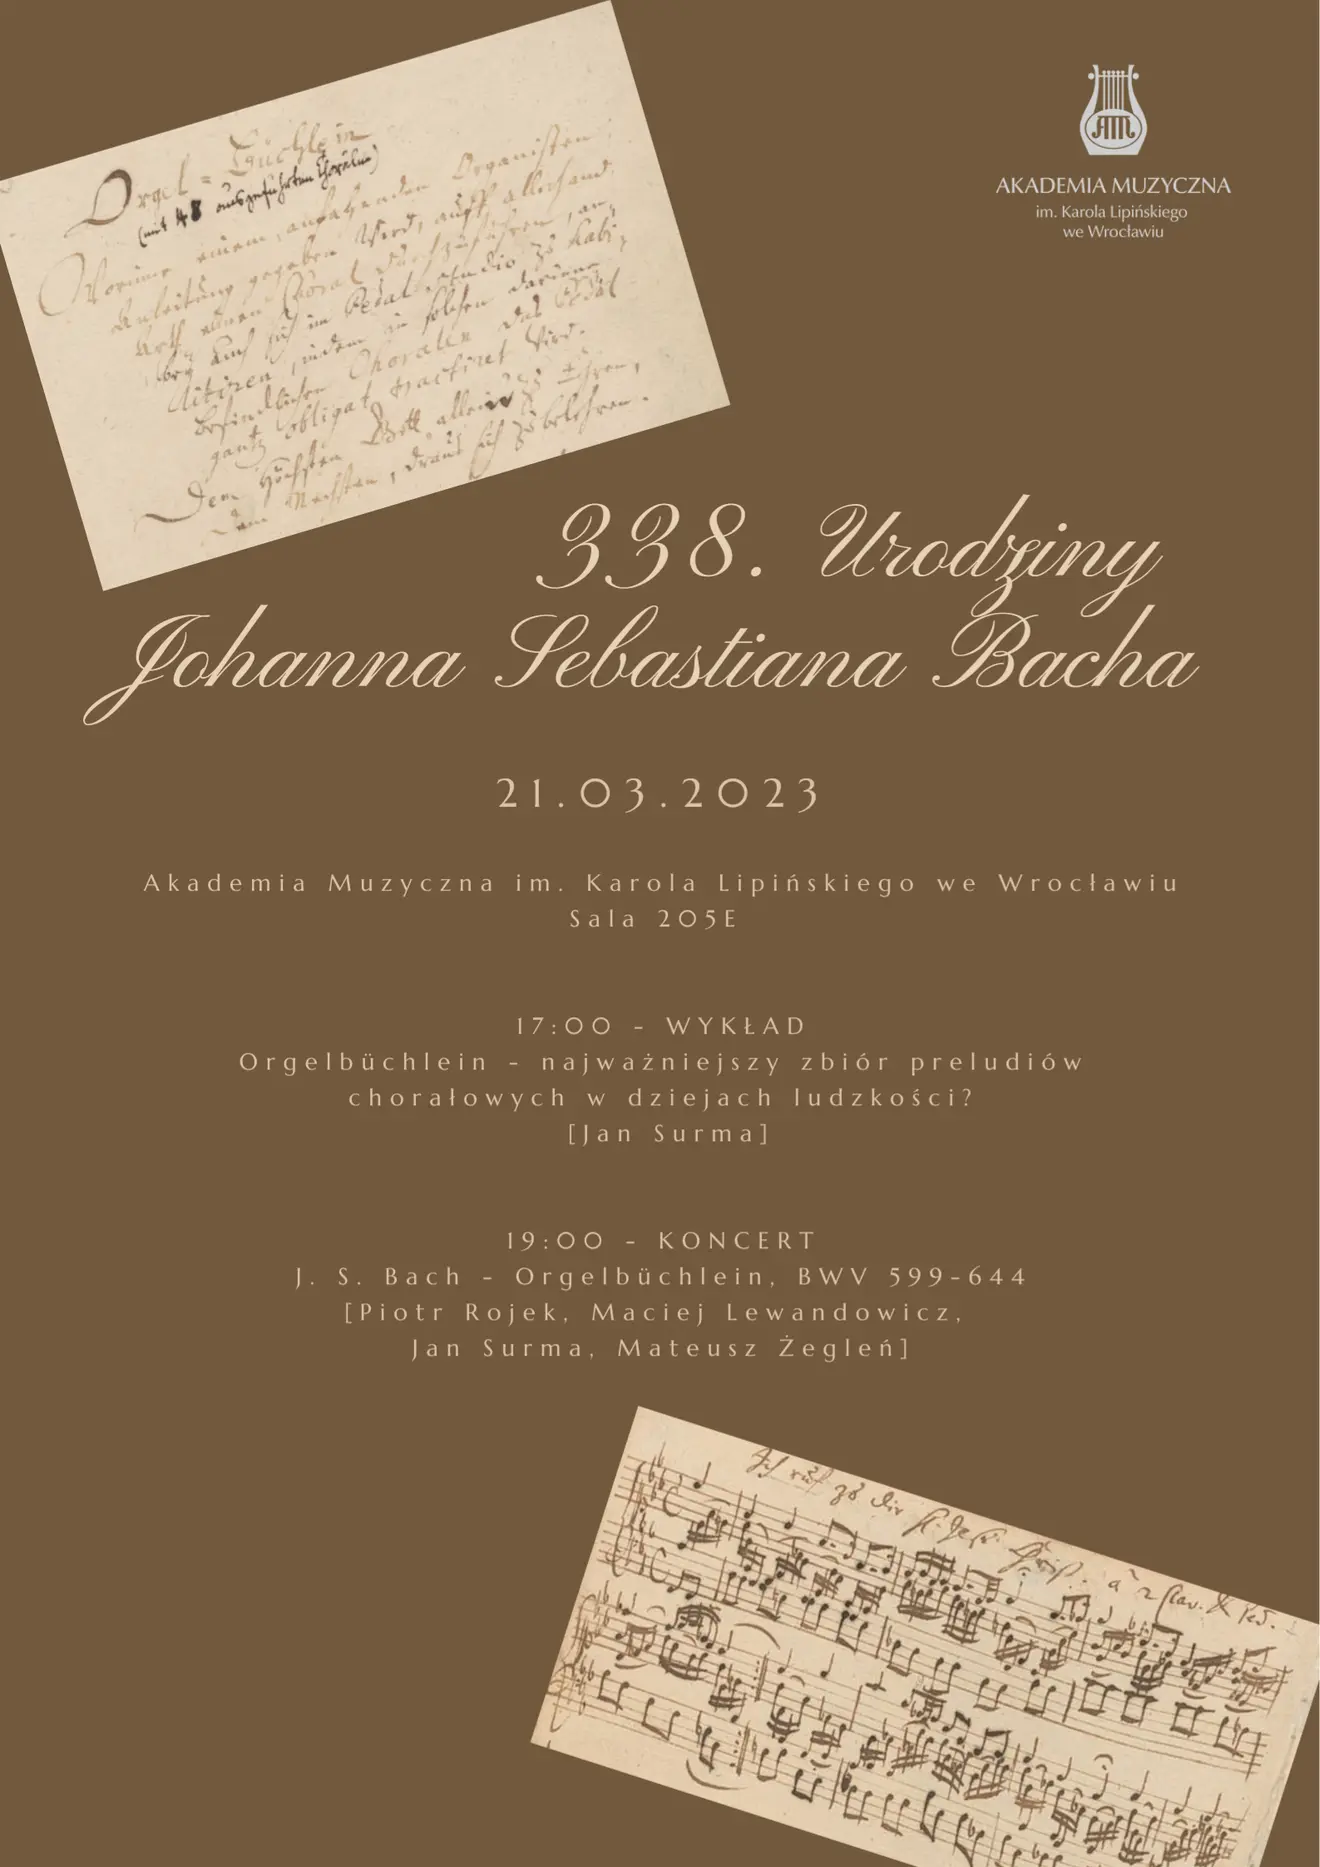 Orgel = Büchlein
(mit 48 ausgeführten Chorälen)
Worinne einem anfahenden Organisten
Anleitung gegeben wird, auff allerhand
Arth einen Choral durchzuführen, an-
bey auch sich im Pedal studio zu habi-
litiren, indem in solchen darinne
befindlichen Choralen das Pedal
gantz obligat tractiret wird.
Dem Höchsten Gott allein zu Ehren,
Dem Nechsten, draus sich zu belehren.
AKADEMIA MUZYCZNA
im. Karola Lipińskiego
we Wrocławiu
338. Urodziny
Johanna Sebastiana Bacha
21.03.2023
Akademia Muzyczna im. Karola Lipińskiego we Wrocławiu
Sala 205E
17:00 - WYKŁAD
Orgelbüchlein - najważniejszy zbiór preludiów
chorałowych w dziejach ludzkości?
[Jan Surma]
19:00 - KONCERT
J. S. Bach - Orgelbüchlein, BWV 599-644
[Piotr Rojek, Maciej Lewandowicz,
Jan Surma, Mateusz Żegleń]
Ich ruf zu dir a 2 Clav. & Ped.